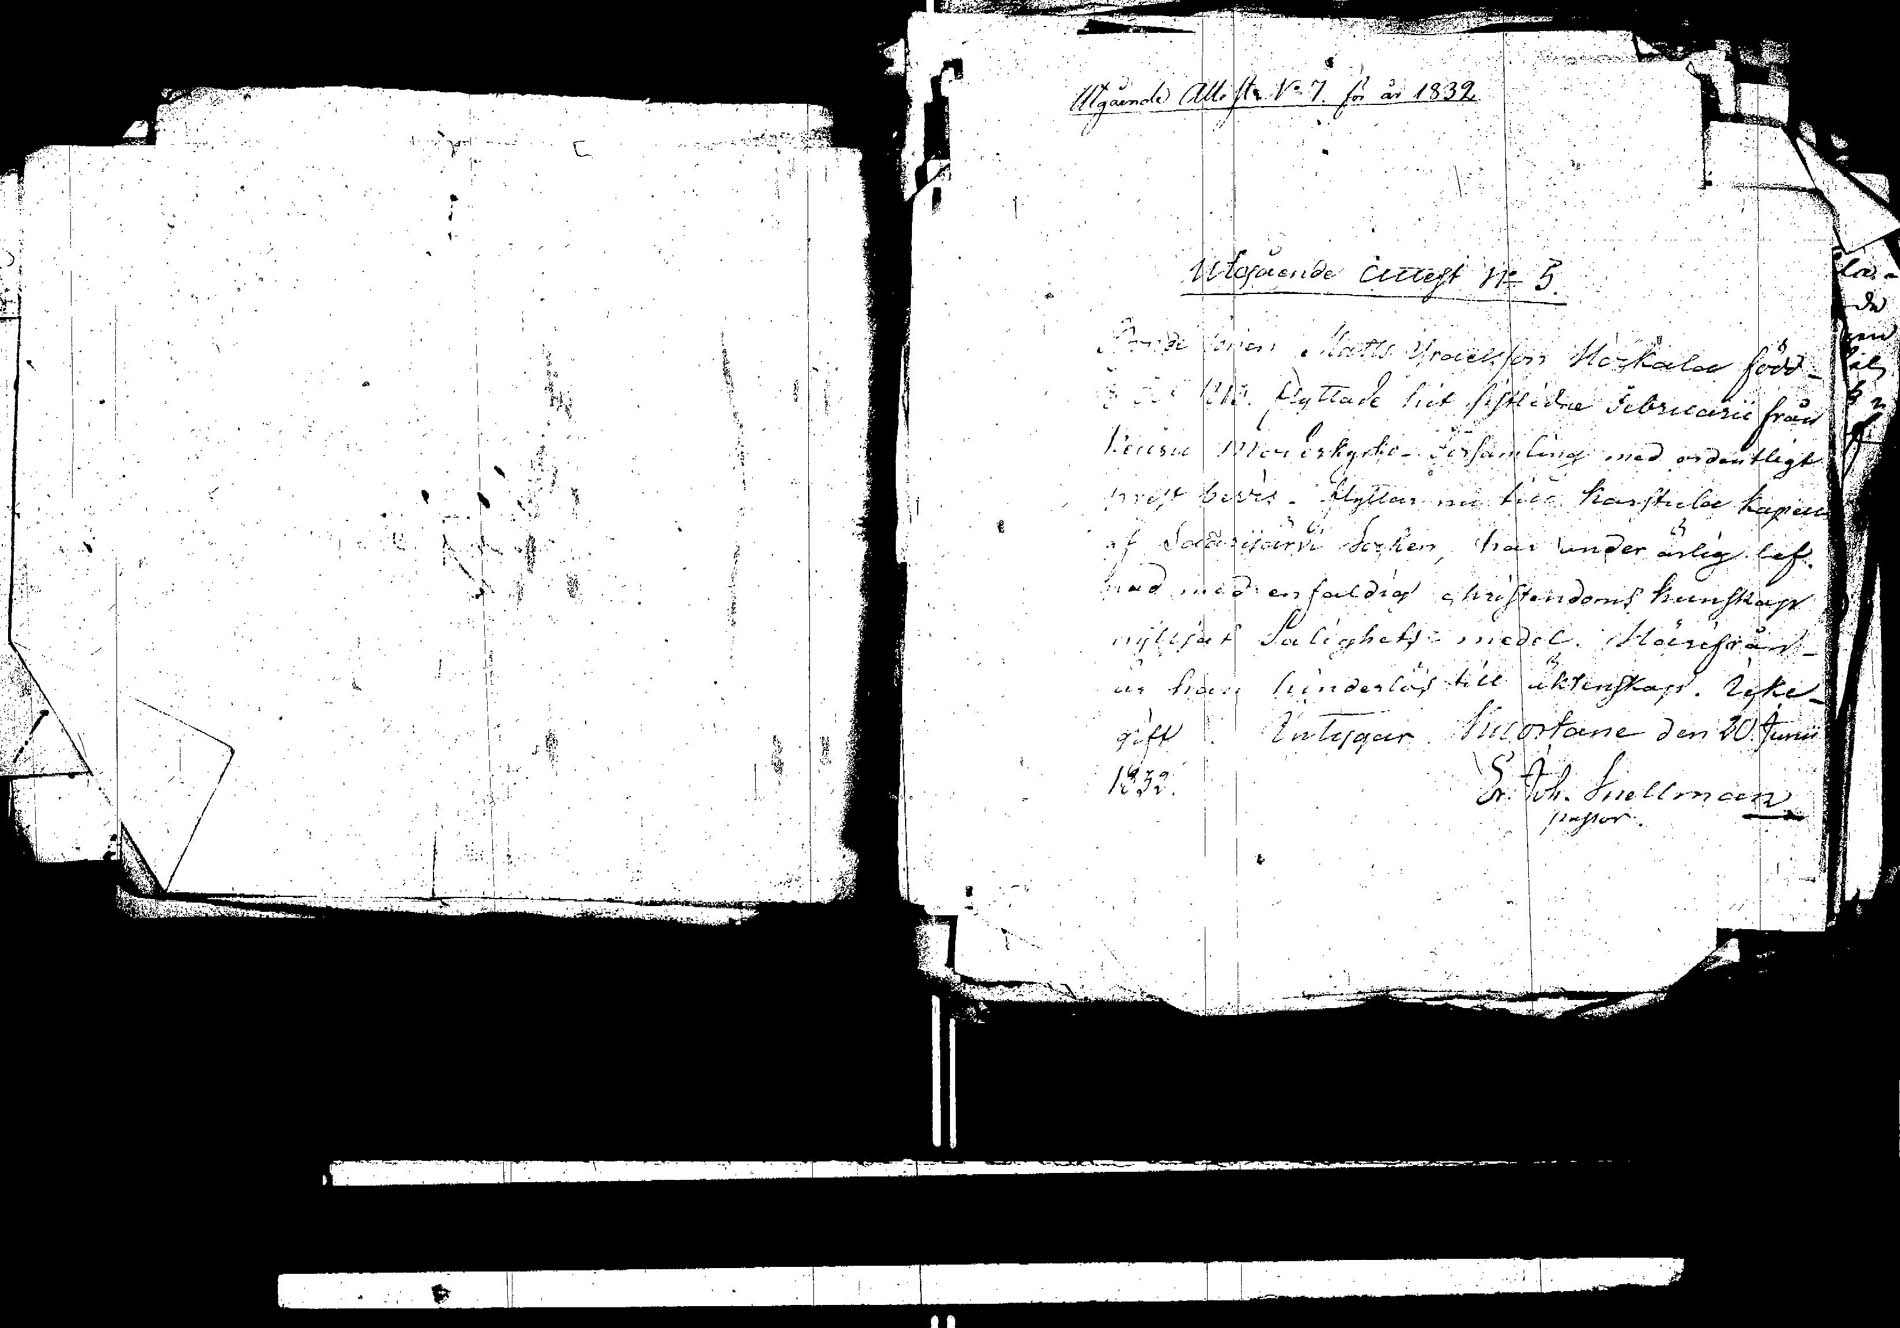 Utgående Attester No 7. för år 1832
Utgående Attest No 5.
Bonde sonen Matts Israelsson Hoskala född
1810. flyttade hit sistledne Februarii från
Keuru Moderkyrko-Församling med ordentligt
prest bevis. flyttar nu till Karstula kapell
af Saarijärvi Socken, har under ärlig lef-
nad med enfaldig christendoms kunskap
nyttjat Salighets medel. Härifrån
är han hinderlös till äktenskap. Icke
gift. Intygar Kuortane den 20 Junii
1832. Er. Joh. Snellman
pastor.